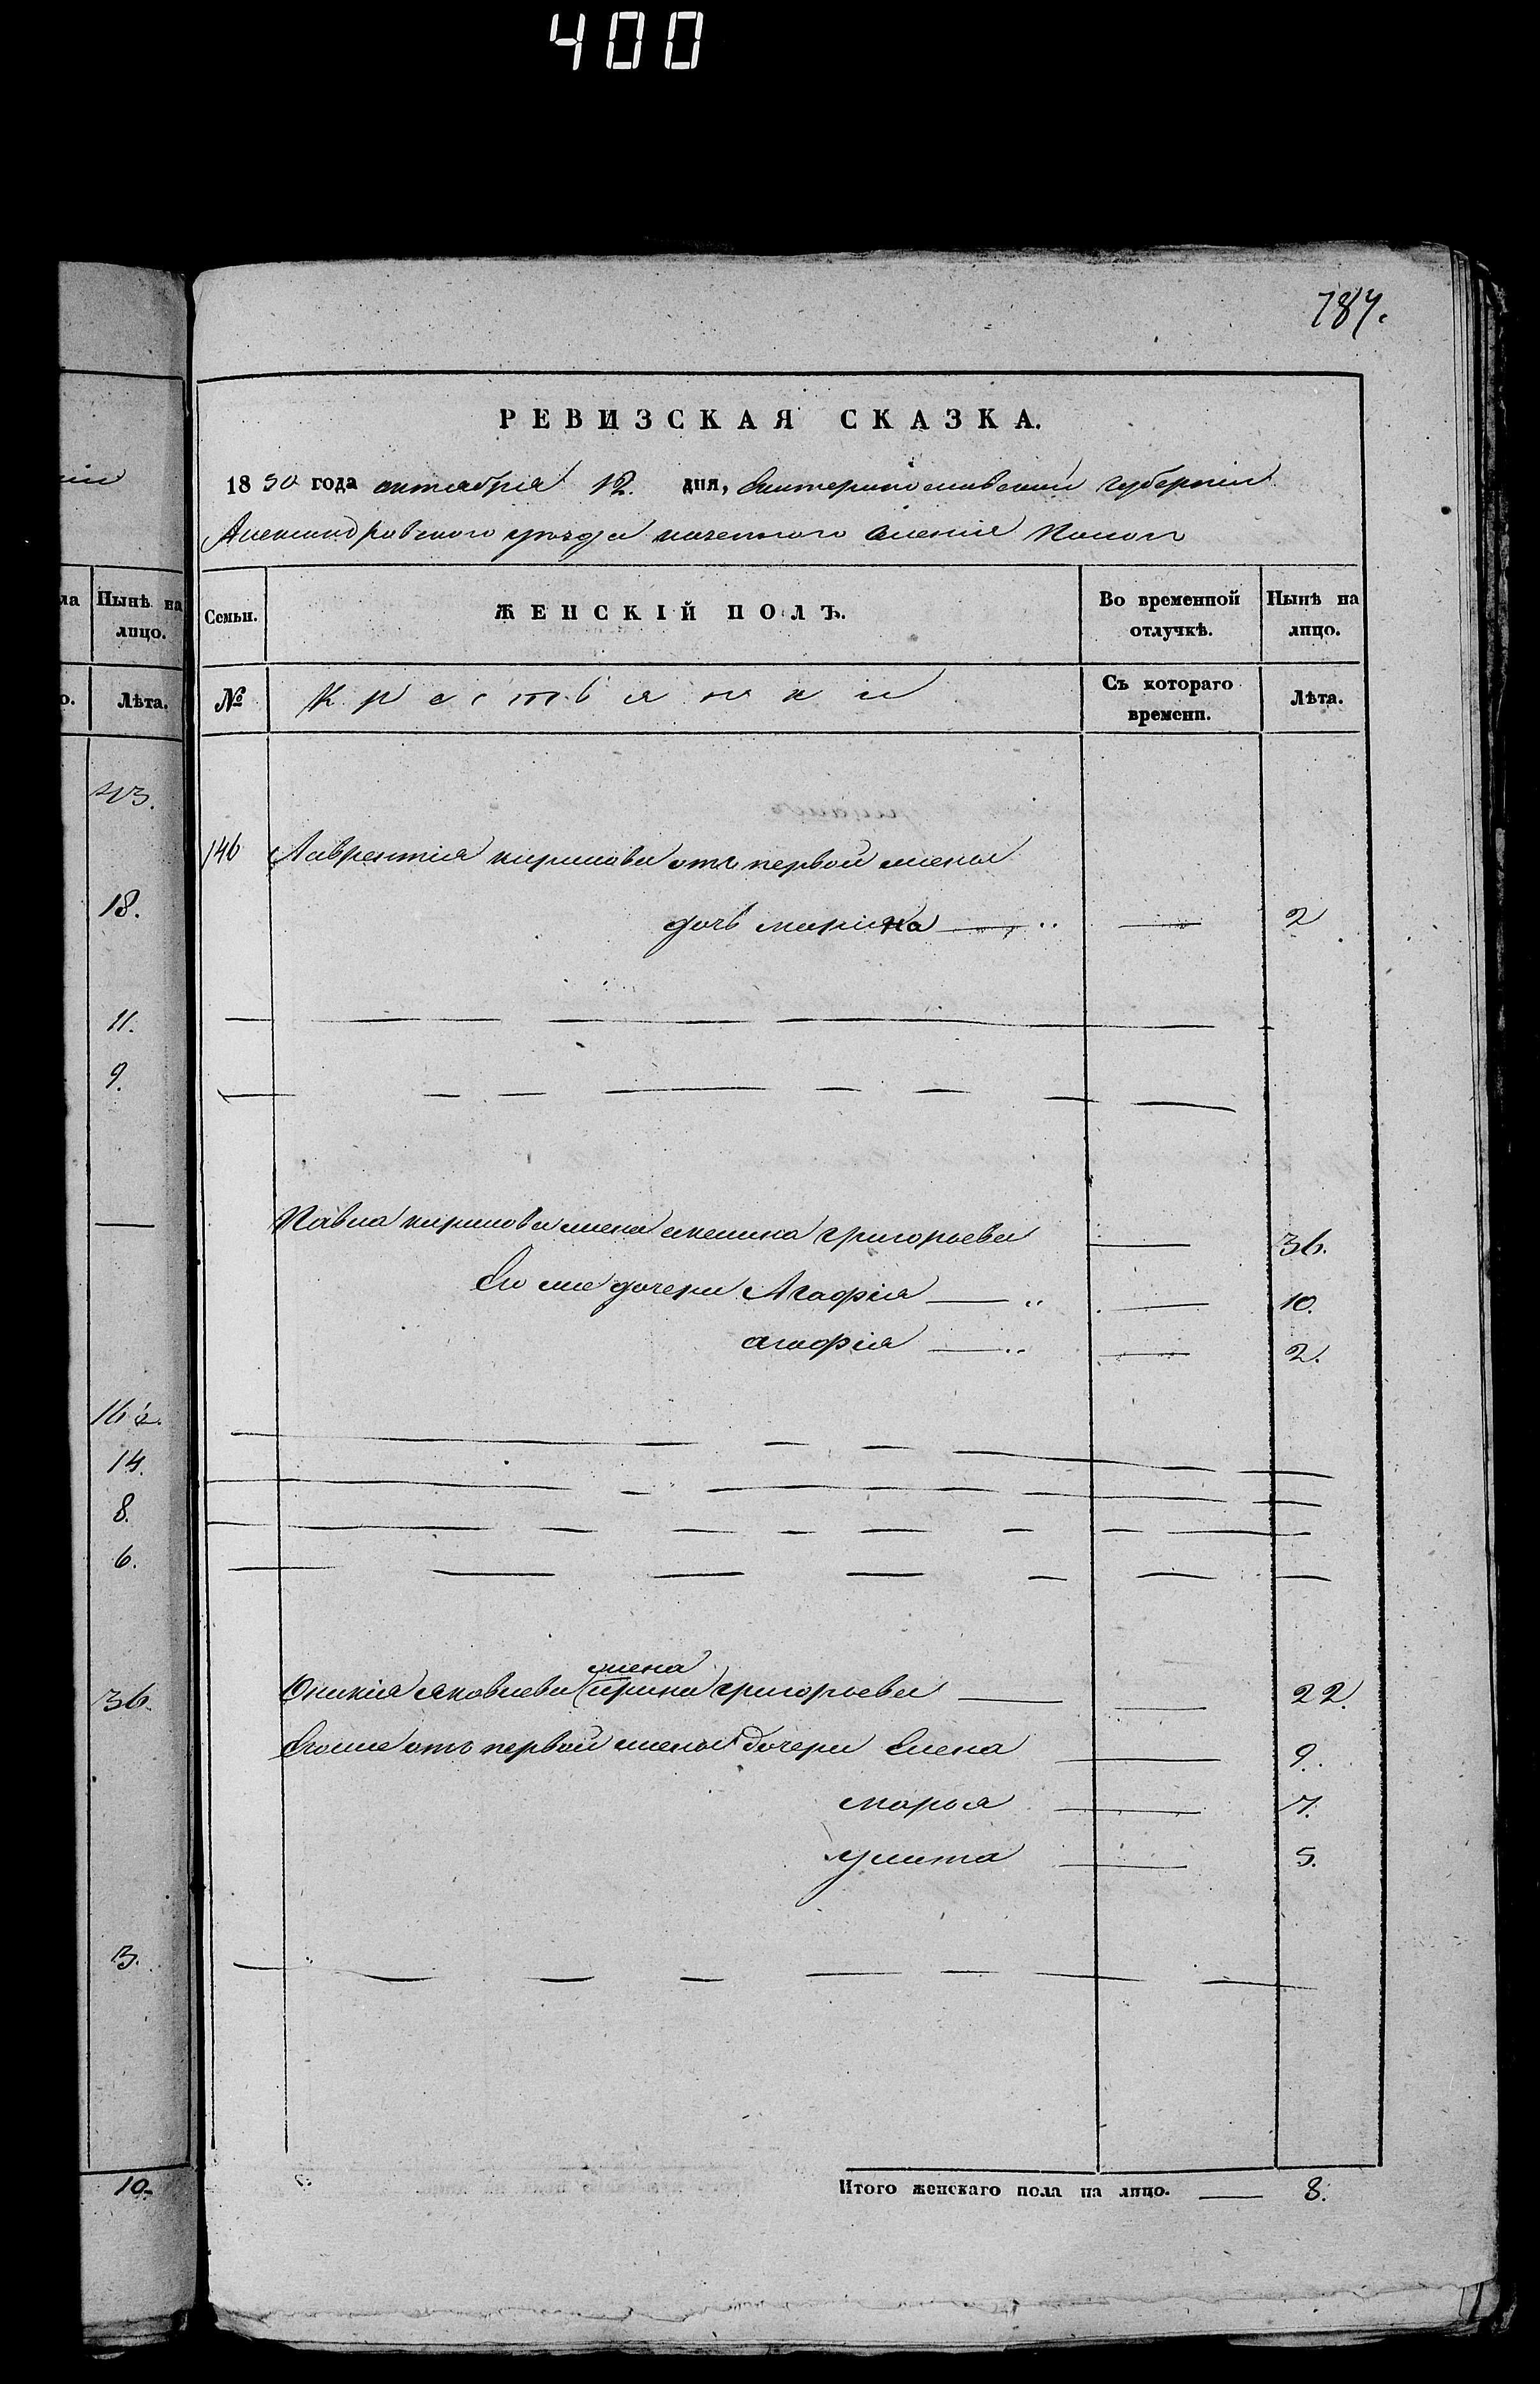 400
787.
РЕВИЗСКАЯ СКАЗКА.
1850 года октября 12. дня, Екатеринославской губернии
Александровского уезда казенного селения
Нынѣ на лицо.
Лѣта.
43.
18.
11.
9.
14.
8.
6.
36.
13.
10.
Семьи. ЖЕНСКІЙ ПОЛЪ. Во временной отлучкѣ. Нынѣ на лицо.
№ Крестьянки Съ котораго времени. Лѣта.
146 Лаврентія кирилова отъ первой жены
дочь марина 2
Павла кирилова жена акилина григорьева 36.
Его же дочери Агафія 10.
агафія 2.
жена
Оникія яковлева ирина григорьева 22.
Его же отъ первой жены дочери Елена 9.
марья 7.
улита 5.
Итого женскаго пола на лицо. 8.